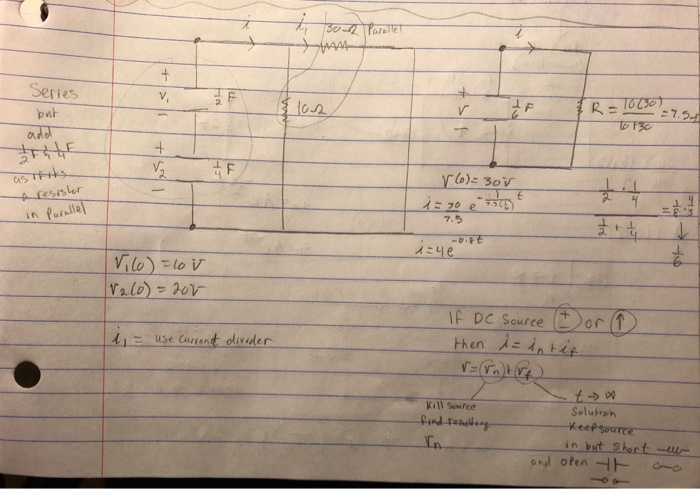 i
i₁
30Ω
Parallel
Series
but
add
½ + ¼ F
as if its
a resistor
in Parallel
+
V₁
-
½ F
10Ω
+
V₂
-
¼ F
i
+
V
-
⅙ F
R = 10(30) / 10+30 = 7.5
V(0) = 30V
i = 30/7.5 e^(-1/(7.5(⅙)) t)
i = 4e^(-0.8t)
(½ · ¼) / (½ + ¼) = ⅛ · 4/3
↓
⅙
V₁(0) = 10V
V₂(0) = 20V
i₁ = use current divider
If DC Source (+-) or (↑)
then i = iₙ + i_f
V = (Vₙ) + (V_f)
Kill source
find resulting
Vₙ
t → ∞
Solution
Keep source
in but short
and open